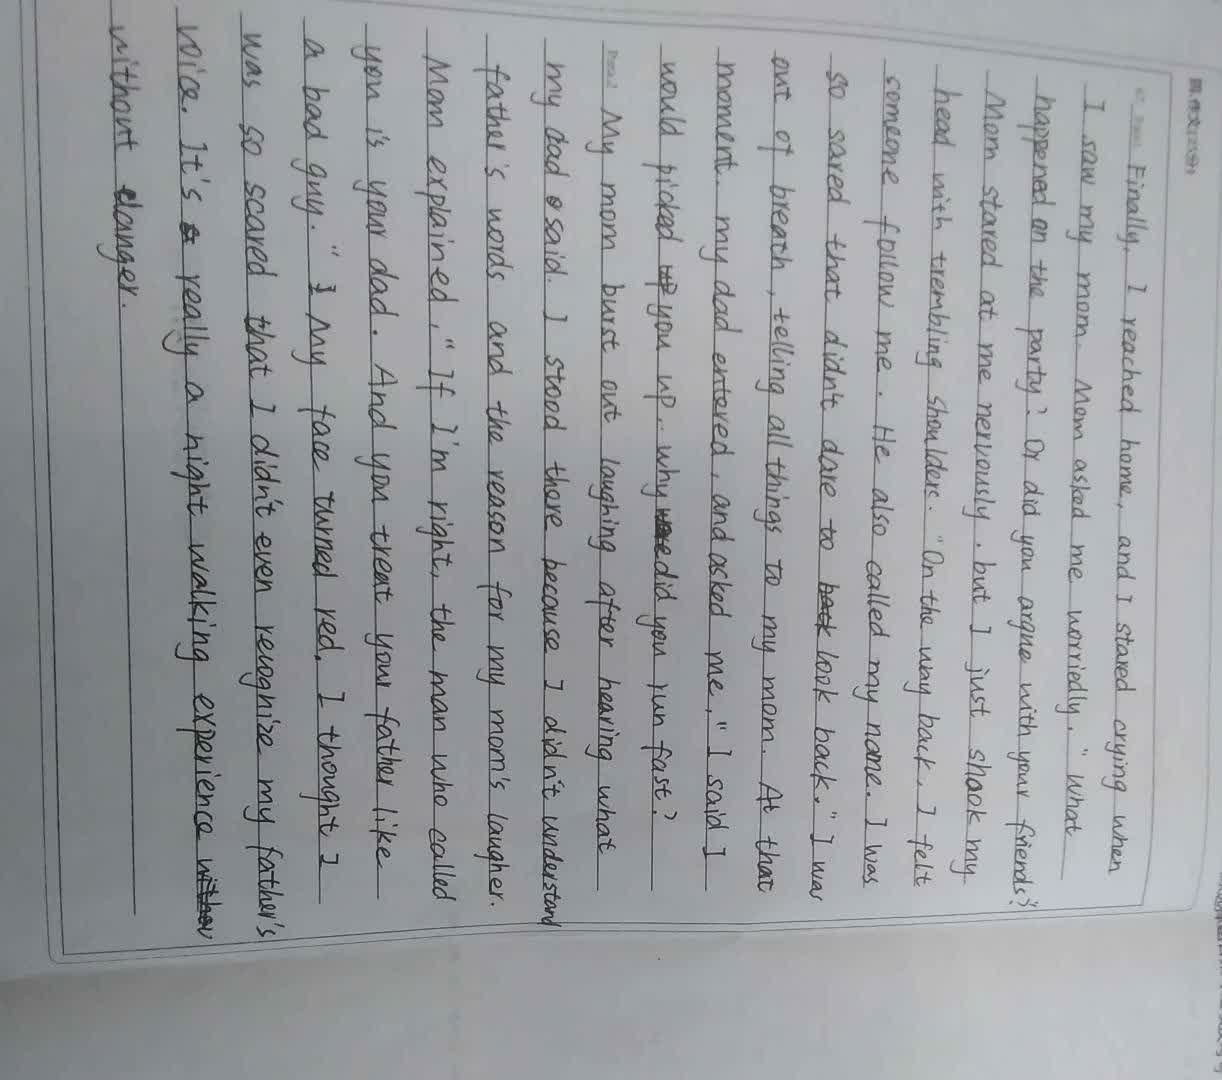 四、作文(25分)
Finally, I reached home, and I stared crying when
I saw my mom. Mom asked me worriedly, "What
happened on the party? Or did you argue with your friends?"
Mom stared at me nervously, but I just shook my
head with trembling shoulders. "On the way back, I felt
someone follow me. He also called my name. I was
so sared that didn't dare to look back." I was
out of breath, telling all things to my mom. At that
moment, my dad entered, and asked me, "I said I
would picked you up. why did you run fast?
Para.2 My mom burst out laughing after hearing what
my dad said. I stood there because I didn't understand
father's words and the reason for my mom's laugher.
Mom explained, "If I'm right, the man who called
you is your dad. And you treat your father like
a bad guy." My face turned red. I thought I
was so scared that I didn't even reughize my father's
voice. It's really a night walking experience
without danger.